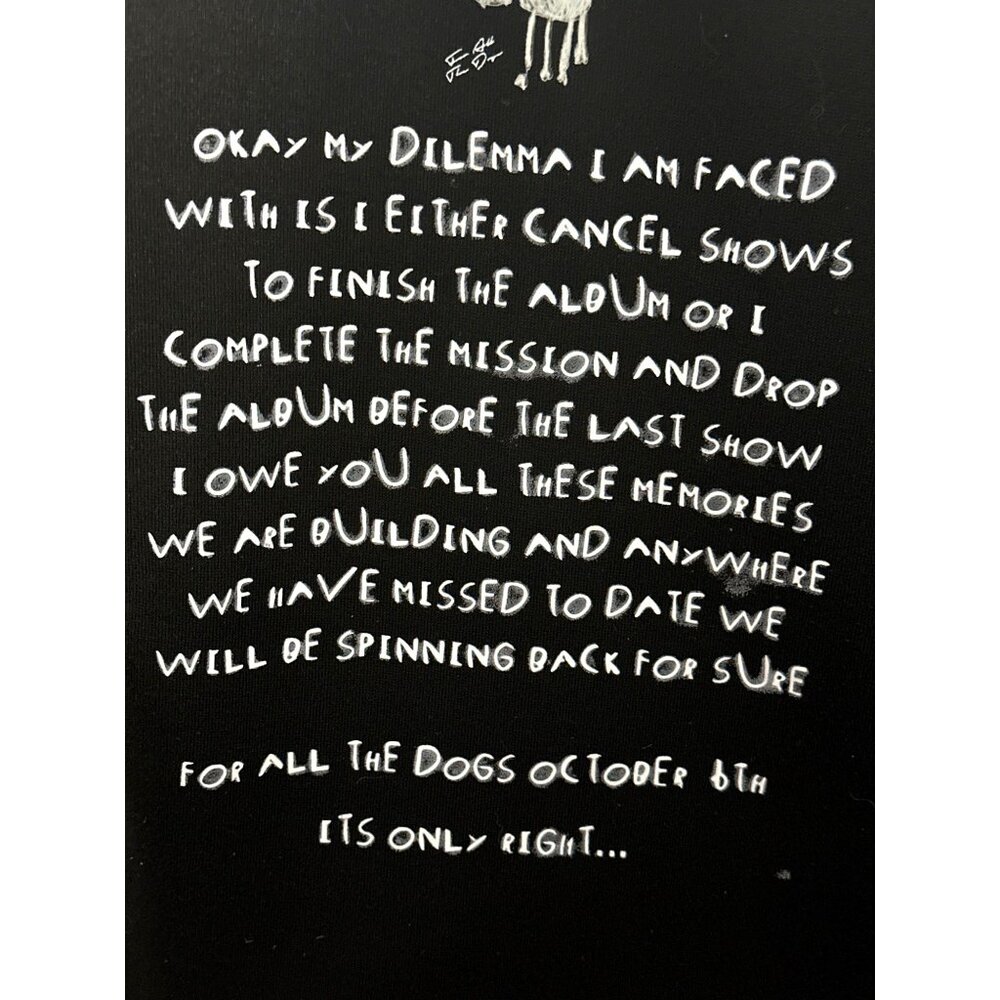 For All
The Dogs
OKAY MY DILEMMA I AM FACED
WITH IS I EITHER CANCEL SHOWS
TO FINISH THE ALBUM OR I
COMPLETE THE MISSION AND DROP
THE ALBUM BEFORE THE LAST SHOW
I OWE YOU ALL THESE MEMORIES
WE ARE BUILDING AND ANYWHERE
WE HAVE MISSED TO DATE WE
WILL BE SPINNING BACK FOR SURE
FOR ALL THE DOGS OCTOBER 6TH
ITS ONLY RIGHT...